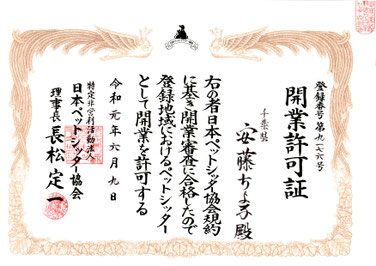 開業許可証
登録番号 第九一七六号
千葉県
安藤ちよ子殿
右の者日本ペットシッター協会規約
に基き開業審査に合格したので
登録地域におけるペットシッター
として開業を許可する
令和元年六月九日
特定非営利活動法人
日本ペットシッター協会
理事長 長松定一